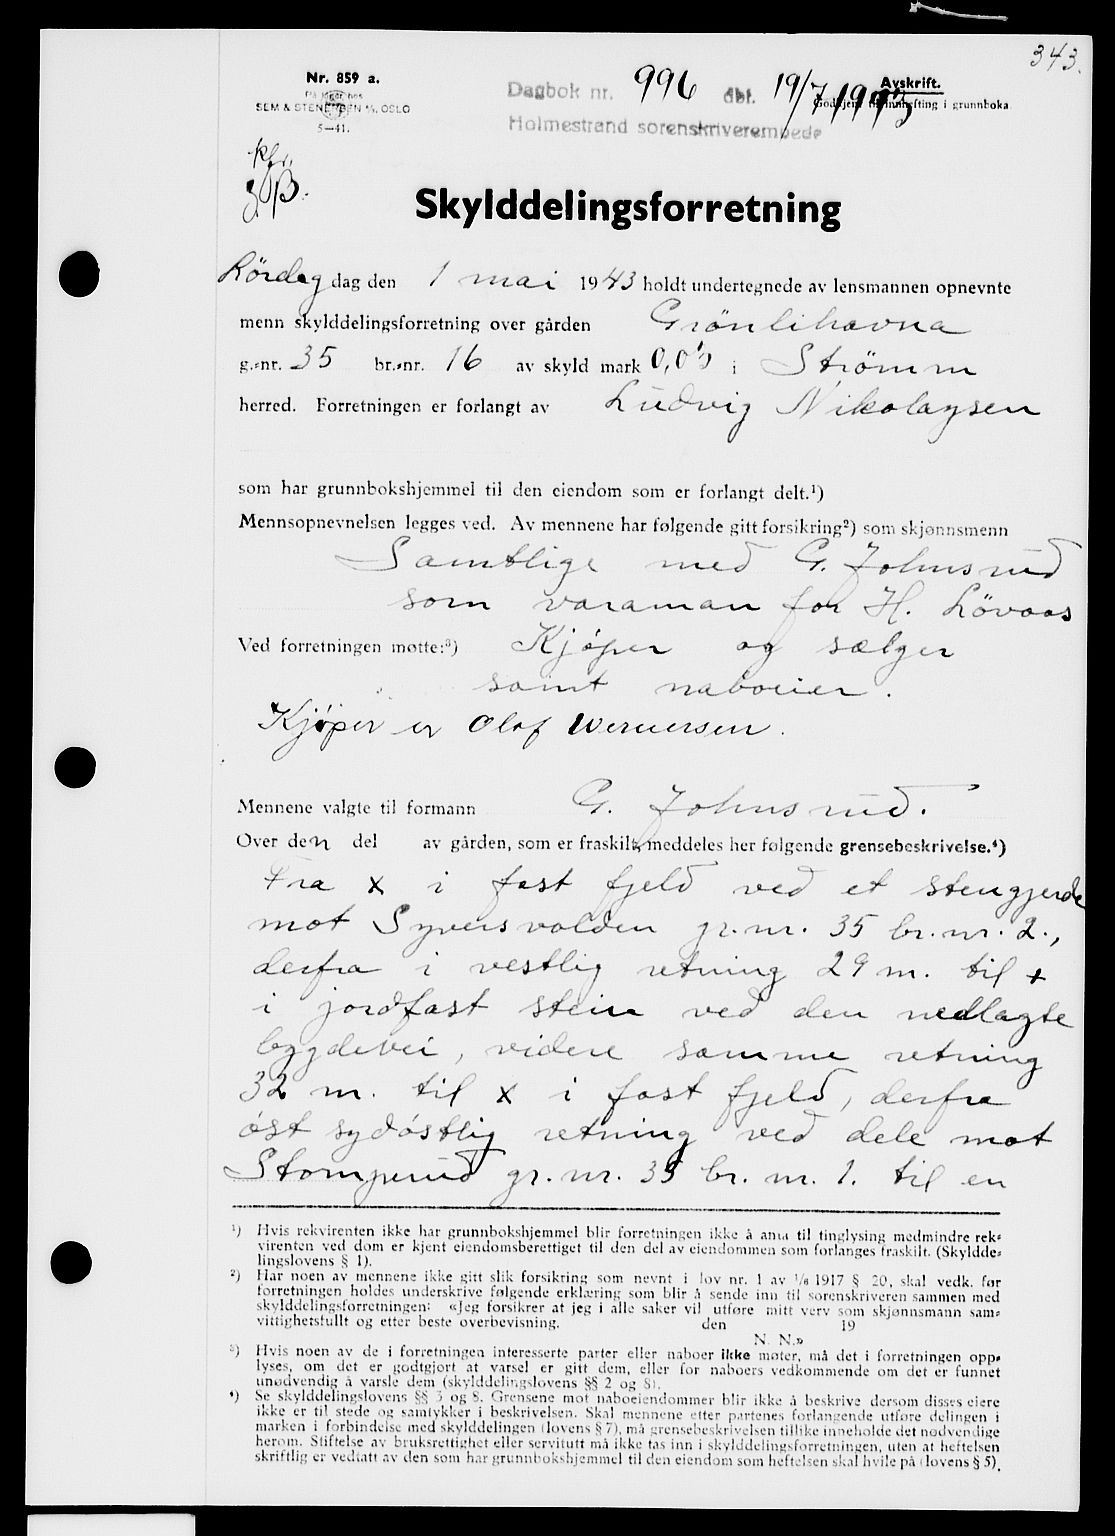 343.
Nr. 859 a.
På lager hos
SEM & STENERSEN A/S, OSLO
5—41.
Dagbok nr. 996 dbf. 19/7 1943
Holmestrand sorenskriverembede
Avskrift.
Godkjent til innhefting i grunnboka
kfr.
Skylddelingsforretning
Lördag dag den 1 mai 1943 holdt undertegnede av lensmannen opnevnte
menn skylddelingsforretning over gården Grönlihavna
g.-nr. 35 br.-nr. 16 av skyld mark 0,0 i Strömm
herred. Forretningen er forlangt av Ludvig Nikolaysen
som har grunnbokshjemmel til den eiendom som er forlangt delt.¹)
Mennsopnevnelsen legges ved. Av mennene har følgende gitt forsikring²) som skjønnsmenn
Samtlige med G. Johnsrud
som varaman for H. Lövaas
Ved forretningen møtte:³) Kjøper og sælger
samt naboeier.
Kjøper er Olaf Wernersen.
Mennene valgte til formann G. Johnsrud.
Over den del av gården, som er fraskilt, meddeles her følgende grensebeskrivelse.⁴)
Fra x i fast fjeld ved et stengjerde
mot Syversvolden gr. nr. 35 br. nr. 2.,
derfra i vestlig retning 29 m. til +
i jordfast stein ved den nedlagte
bygdevei, videre samme retning
32 m. til x i fast fjeld, derfra
øst sydøstlig retning ved dele mot
Stomperud gr. nr. 35 br. nr. 1. til en
¹) Hvis rekvirenten ikke har grunnbokshjemmel blir forretningen ikke å anta til tinglysing medmindre rek-
virenten ved dom er kjent eiendomsberettiget til den del av eiendommen som forlanges fraskilt. (Skyldde-
lingslovens § 1).
²) Har noen av mennene ikke gitt slik forsikring som nevnt i lov nr. 1 av 1/6 1917 § 20, skal vedk. før
forretningen holdes underskrive følgende erklæring som blir å sende inn til sorenskriveren sammen med
skylddelingsforretningen: «Jeg forsikrer at jeg i alle saker vil utføre mitt verv som skjønnsmann sam-
vittighetsfullt og etter beste overbevisning. den 19
N. N.»
³) Hvis noen av de i forretningen interesserte parter eller naboer ikke møter, må det i forretningen opp-
lyses, om det er godtgjort at varsel er gitt dem, eller for naboers vedkommende om det er funnet
unødvendig å varsle dem (skylddelingslovens §§ 2 og 8).
⁴) Se skylddelingslovens §§ 3 og 8. Grensene mot naboeiendommer blir ikke å beskrive dersom disses eiere
ikke er til stede og samtykker i beskrivelsen. Skal mennene etter partenes forlangende utføre delingen i
marken i forbindelse med skylddelingen (lovens § 7), må grensebeskrivelsen tillike inneholde det nødvendige
herom. Stiftelse av bruksrettighet eller servitutt må ikke tas inn i skylddelingsforretningen, uten at heftelsen
skriftlig er vedtatt av den som har grunnbokshjemmel til den eiendom som heftelsen skal hvile på (lovens § 5).